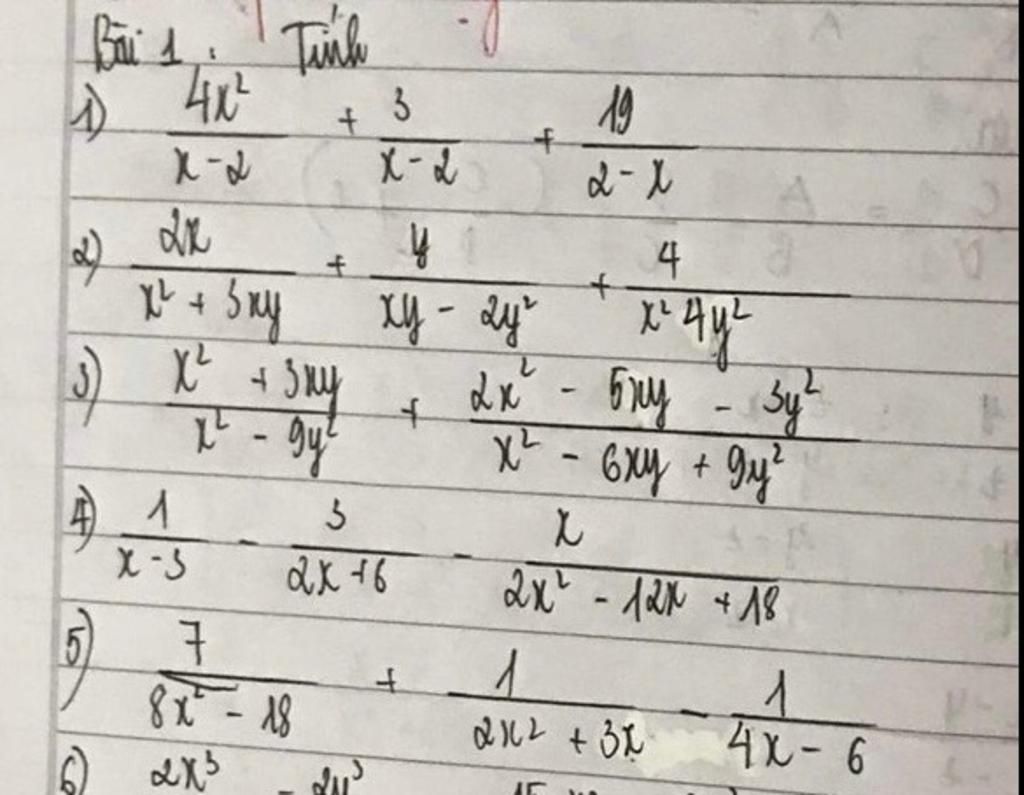 Bài 1: Tính
1) \frac{4x^2}{x-2} + \frac{3}{x-2} + \frac{19}{2-x}
2) \frac{2x}{x^2+3xy} + \frac{y}{xy-2y^2} + \frac{4}{x^2 4y^2}
3) \frac{x^2+3xy}{x^2-9y^2} + \frac{2x^2-5xy-3y^2}{x^2-6xy+9y^2}
4) \frac{1}{x-3} - \frac{3}{2x+6} - \frac{x}{2x^2-12x+18}
5) \frac{7}{8x^2-18} + \frac{1}{2x^2+3x} - \frac{1}{4x-6}
6) 2x^3 - 2y^3